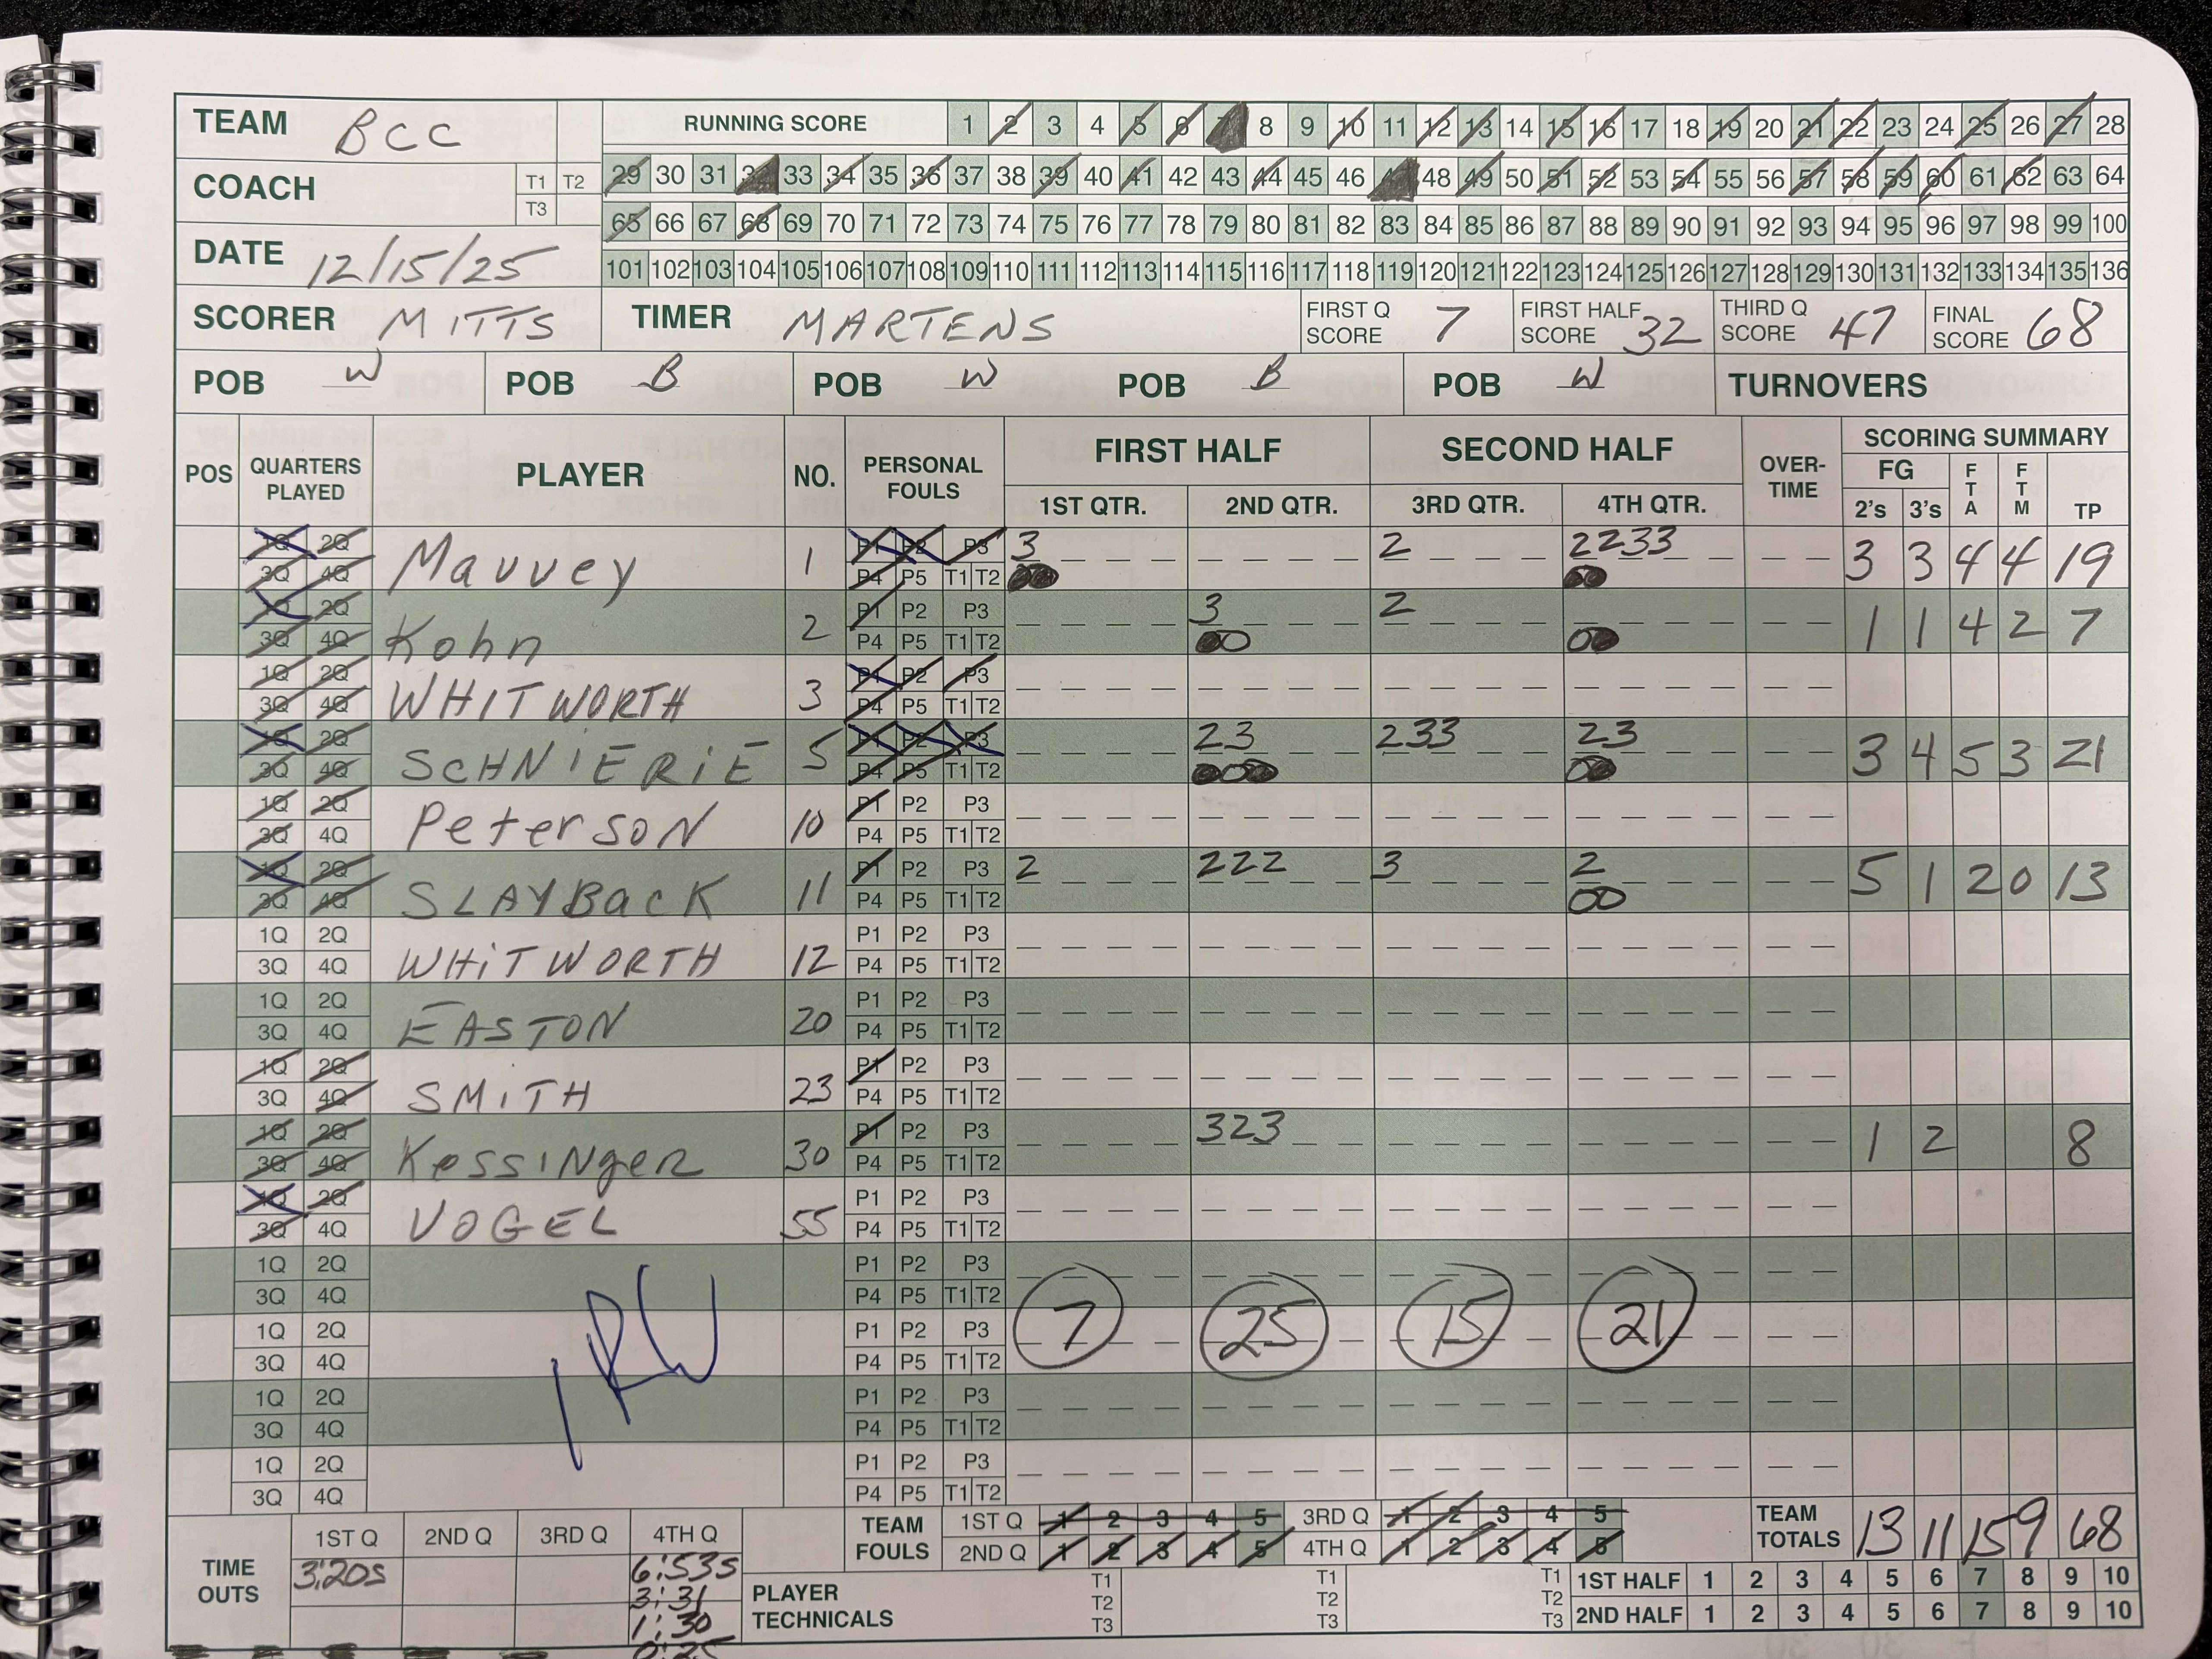 TEAM BCC RUNNING SCORE 1 2 3 4 5 6 7 8 9 10 11 12 13 14 15 16 17 18 19 20 21 22 23 24 25 26 27 28
COACH T1 T2 T3 29 30 31 32 33 34 35 36 37 38 39 40 41 42 43 44 45 46 47 48 49 50 51 52 53 54 55 56 57 58 59 60 61 62 63 64
65 66 67 68 69 70 71 72 73 74 75 76 77 78 79 80 81 82 83 84 85 86 87 88 89 90 91 92 93 94 95 96 97 98 99 100
DATE 12/15/25 101 102 103 104 105 106 107 108 109 110 111 112 113 114 115 116 117 118 119 120 121 122 123 124 125 126 127 128 129 130 131 132 133 134 135 136
SCORER MITTS TIMER MARTENS FIRST Q SCORE 7 FIRST HALF SCORE 32 THIRD Q SCORE 47 FINAL SCORE 68
POB W POB B POB W POB B POB W TURNOVERS
POS QUARTERS PLAYED PLAYER NO. PERSONAL FOULS FIRST HALF SECOND HALF OVER-TIME SCORING SUMMARY
1ST QTR. 2ND QTR. 3RD QTR. 4TH QTR. FG 2's 3's FTA FTM TP
1Q 2Q Mauvey 1 P1 P2 P3 3 2 2233 3 3 4 4 19
3Q 4Q P4 P5 T1 T2
1Q 2Q Kohn 2 P1 P2 P3 3 2 1 1 4 2 7
3Q 4Q P4 P5 T1 T2
1Q 2Q WHITWORTH 3 P1 P2 P3
3Q 4Q P4 P5 T1 T2
1Q 2Q SCHNIERIE 5 P1 P2 P3 23 233 23 3 4 5 3 21
3Q 4Q P4 P5 T1 T2
1Q 2Q PeterSON 10 P1 P2 P3
3Q 4Q P4 P5 T1 T2
1Q 2Q SLAYBACK 11 P1 P2 P3 2 222 3 2 5 1 2 0 13
3Q 4Q P4 P5 T1 T2
1Q 2Q WHiTWORTH 12 P1 P2 P3
3Q 4Q P4 P5 T1 T2
1Q 2Q EASTON 20 P1 P2 P3
3Q 4Q P4 P5 T1 T2
1Q 2Q SMITH 23 P1 P2 P3
3Q 4Q P4 P5 T1 T2
1Q 2Q KessINgeR 30 P1 P2 P3 323 1 2 8
3Q 4Q P4 P5 T1 T2
1Q 2Q VOGEL 55 P1 P2 P3
3Q 4Q P4 P5 T1 T2
1Q 2Q P1 P2 P3
3Q 4Q P4 P5 T1 T2
1Q 2Q P1 P2 P3 7 25 15 21
3Q 4Q P4 P5 T1 T2
1Q 2Q P1 P2 P3
3Q 4Q P4 P5 T1 T2
1Q 2Q P1 P2 P3
3Q 4Q P4 P5 T1 T2
TIME OUTS 1ST Q 2ND Q 3RD Q 4TH Q
3:20s 6:53s
3:31
1:30
0:25
TEAM FOULS 1ST Q 1 2 3 4 5 3RD Q 1 2 3 4 5
2ND Q 1 2 3 4 5 4TH Q 1 2 3 4 5
TEAM TOTALS 13 11 15 9 68
PLAYER TECHNICALS T1 T2 T3 T1 T2 T3 T1 T2 T3
1ST HALF 1 2 3 4 5 6 7 8 9 10
2ND HALF 1 2 3 4 5 6 7 8 9 10